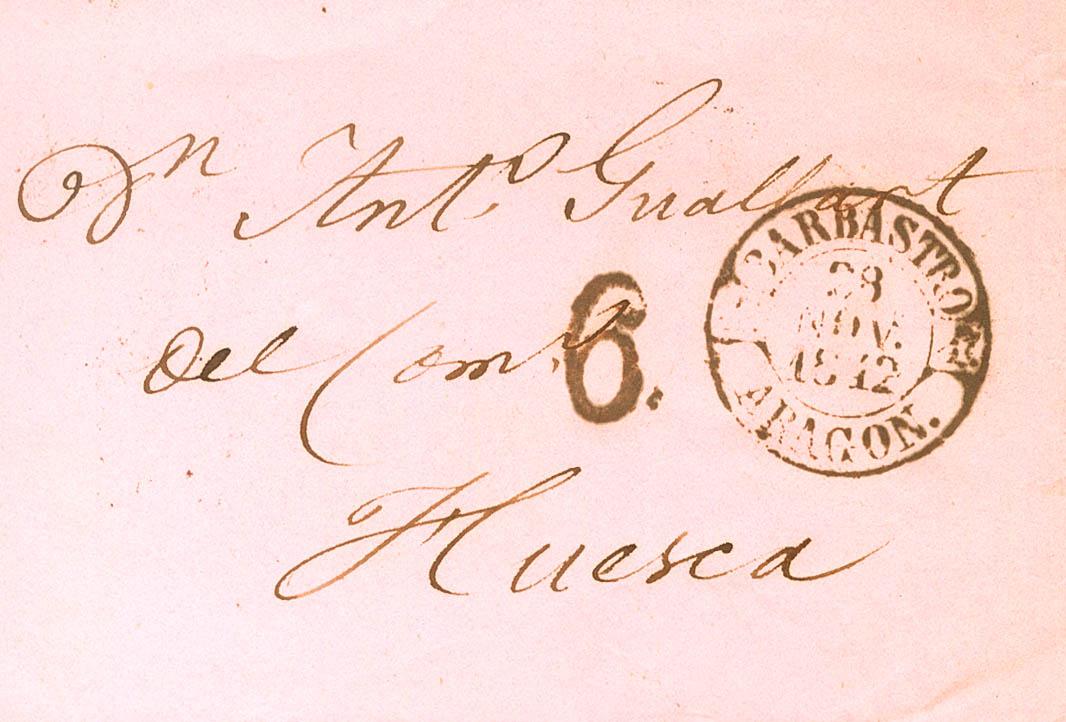 Dn Anto Guallart
6.
BARBASTRO
28
NOV.
1842
ARAGON.
del Como
Huesca